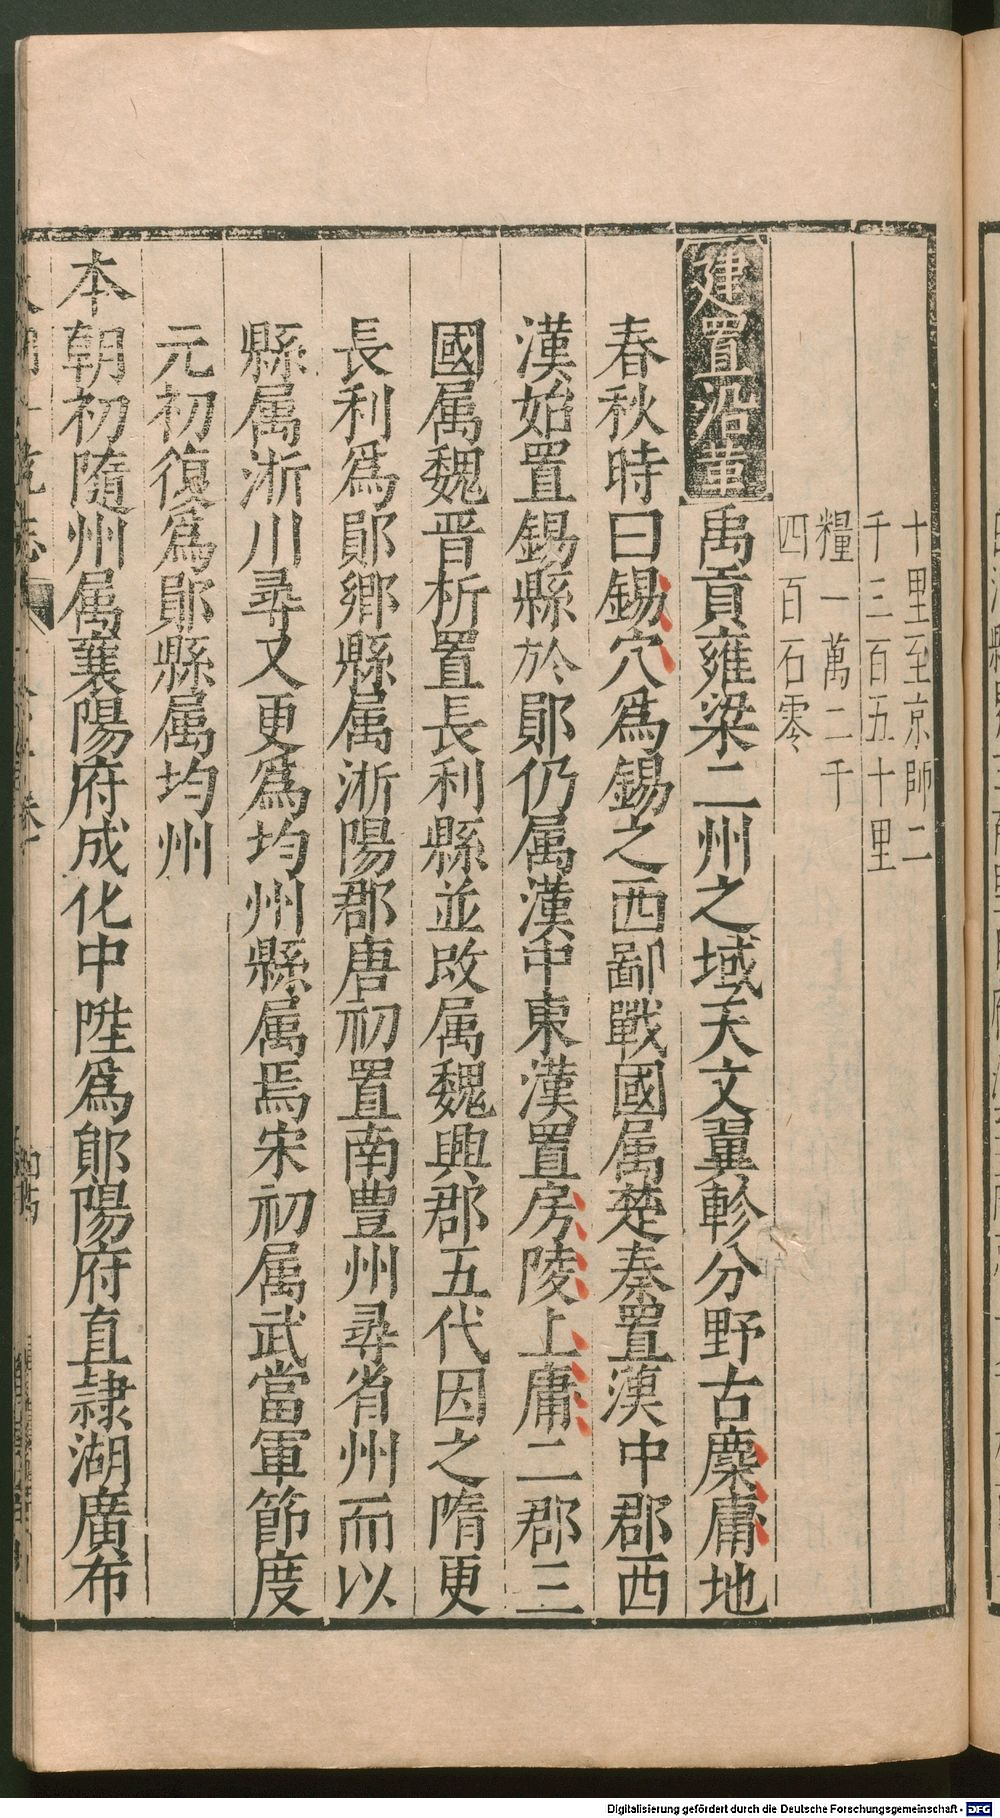 十里至京師二
千三百五十里
糧一萬二千
四百石零
建置沿革 禹貢雍梁二州之域天文翼軫分野古麇庸地
春秋時曰錫穴爲錫之西鄙戰國属楚秦置漢中郡西
漢始置錫縣於鄖仍属漢中東漢置房陵上庸二郡三
國属魏晋析置長利縣並改属魏興郡五代因之隋更
長利爲鄖鄉縣属淅陽郡唐初置南豊州尋省州而以
縣属淅川尋又更爲均州縣属焉宋初属武當軍節度
元初復爲鄖縣属均州
本朝初隨州属襄陽府成化中陞爲鄖陽府直隷湖廣布
Digitalisierung gefördert durch die Deutsche Forschungsgemeinschaft - DFG